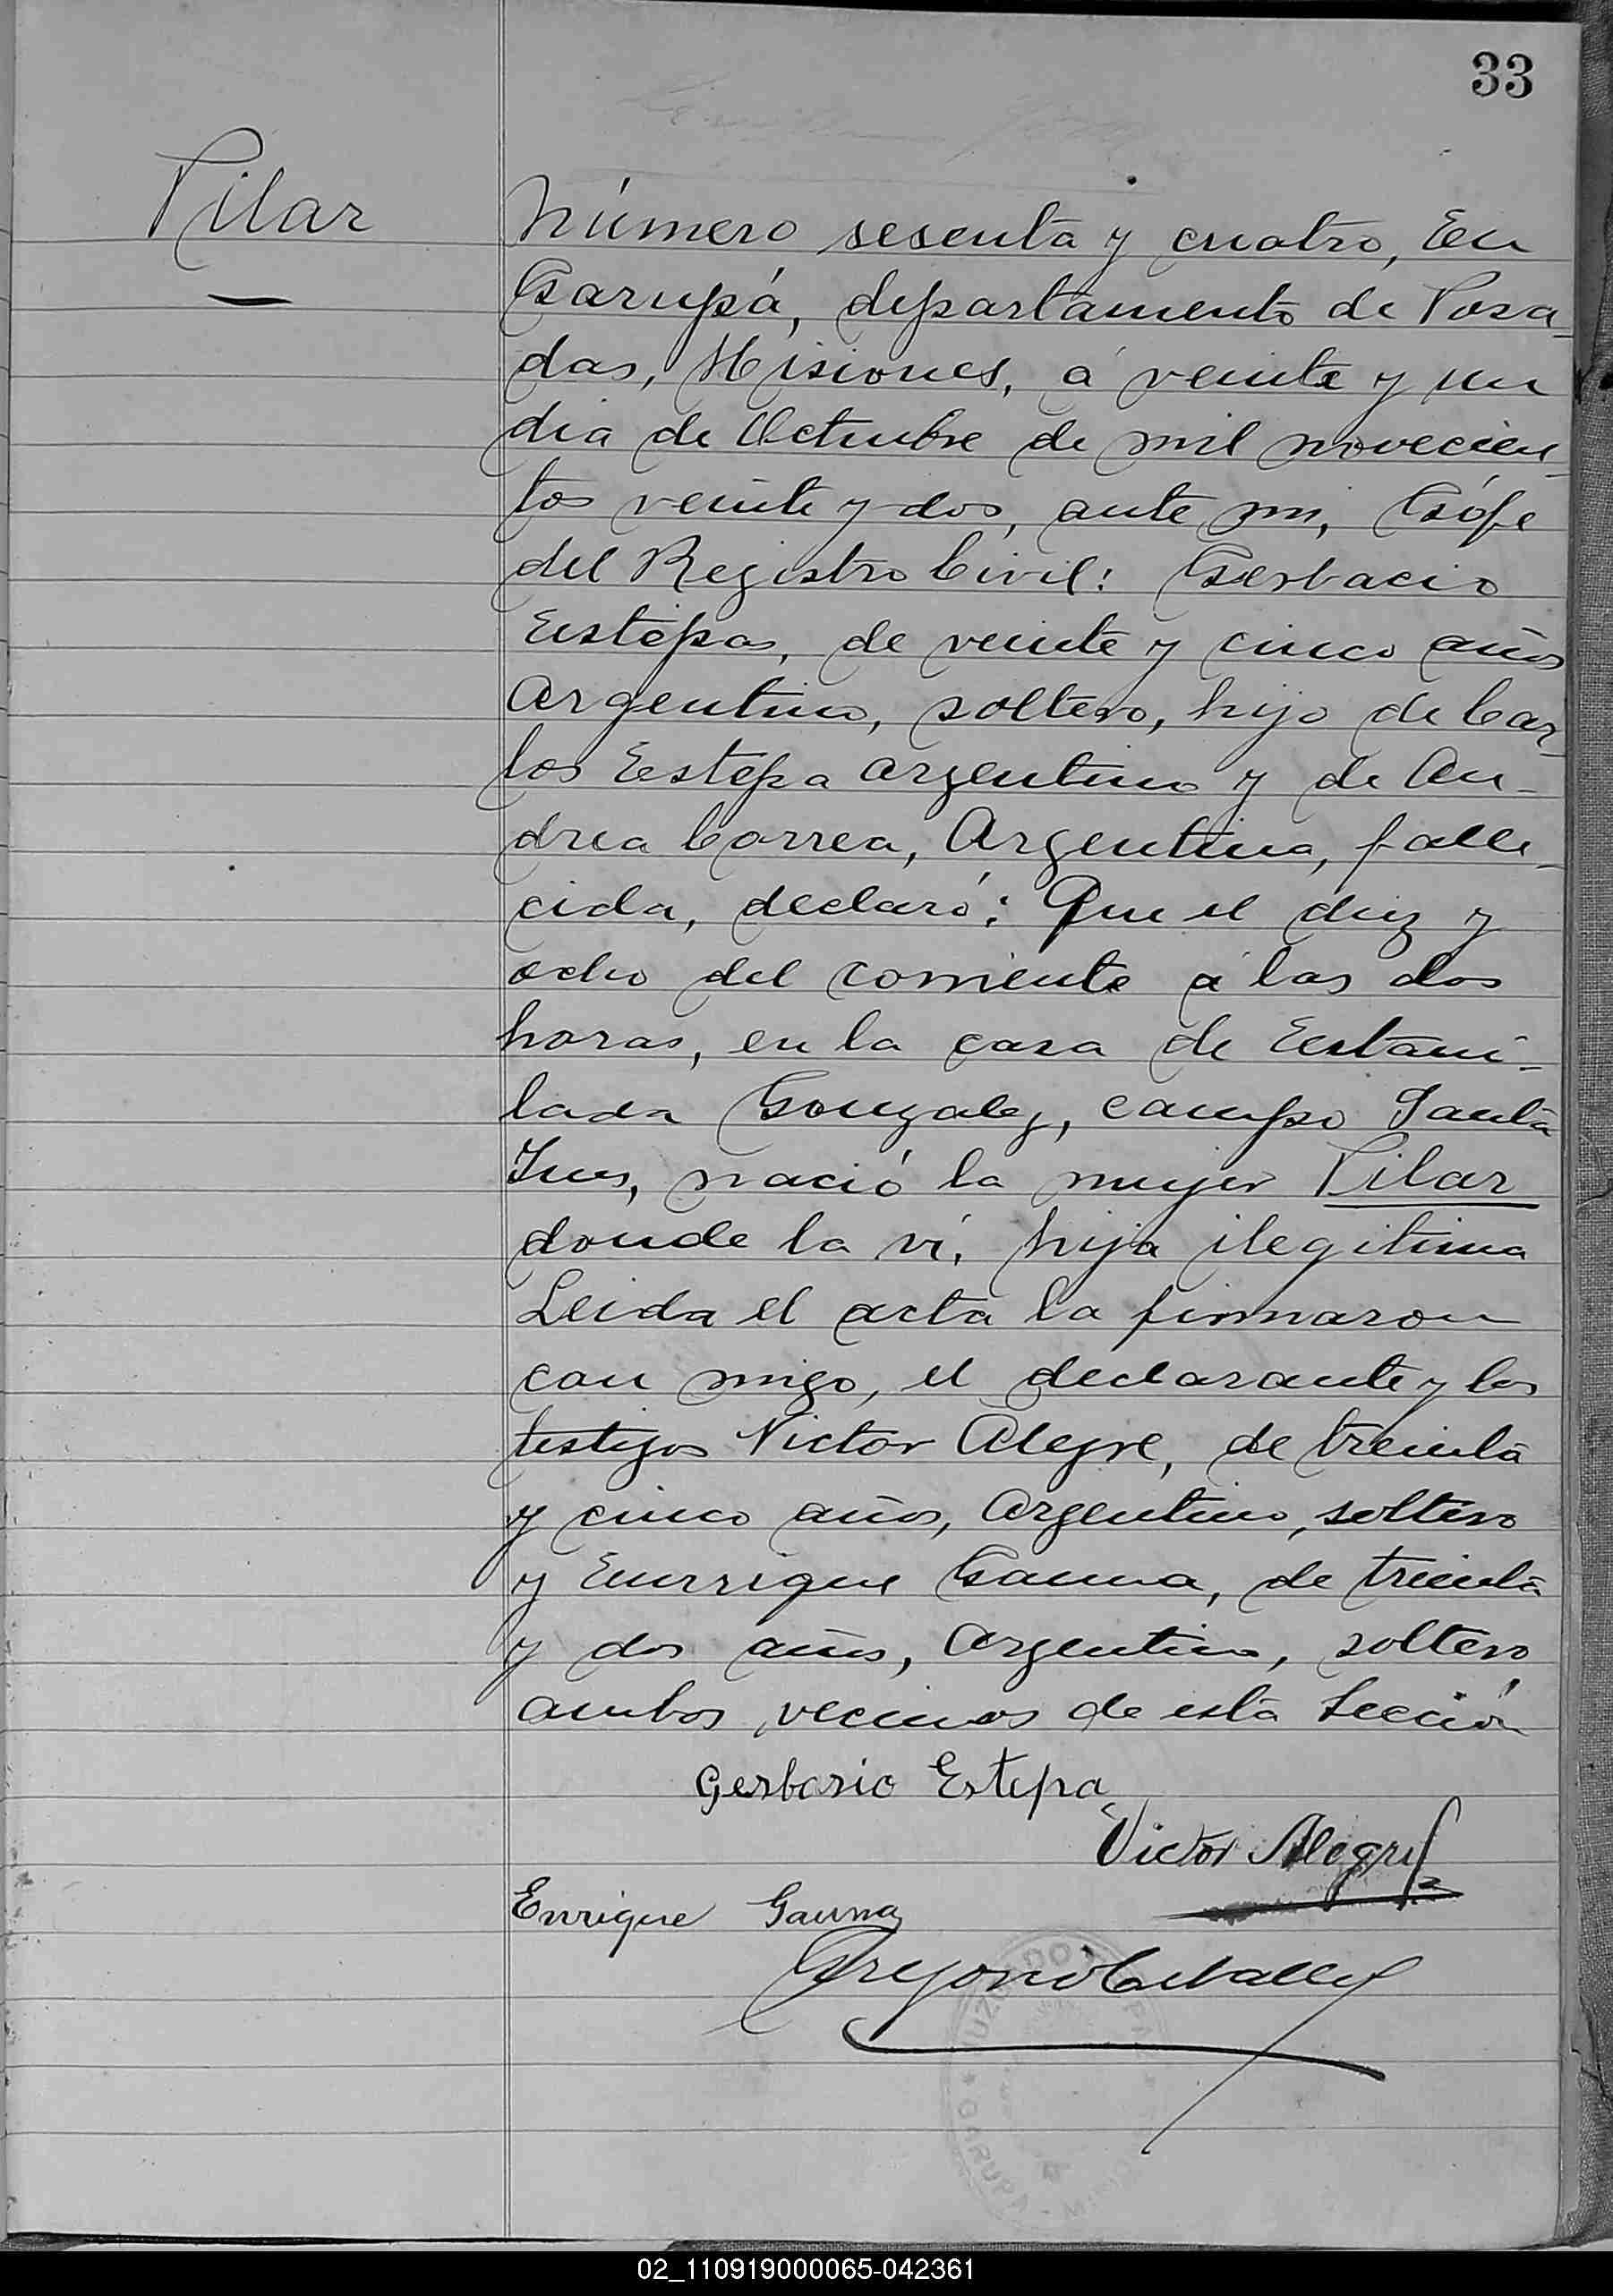 33
Pilar
Número sesenta y cuatro, En
Garupá, departamento de Posa-
das, Misiones, á veinte y un
dia de Octubre de mil novecien-
tos veinte y dos, ante mi, Géfe
del Registro Civil: Gerbacio
Estepa, de veinte y cinco años
Argentino, soltero, hijo de Car-
los Estepa argentino y de An-
drea Correa, Argentina, falle-
cida, declaró: Que el diez y
ocho del corriente á las dos
horas, en la casa de Estani-
lada Gonzalez, campo Santa
Ines, nació la mujer Pilar
donde la ví, hija ilegitima
Leida el acta la firmaron
con migo, el declarante y los
testigos Victor Alegre, de treinta
y cinco años, Argentino, soltero
y Enrrique Gauna, de treinta
y dos años, Argentino, soltero
ambos vecinos de esta Sección
Gerbasio Estepa
Victor Alegre
Enrique Gauna
Gregorio Ceballos
JUZGADO DE PAZ
GARUPA
02_110919000065-042361